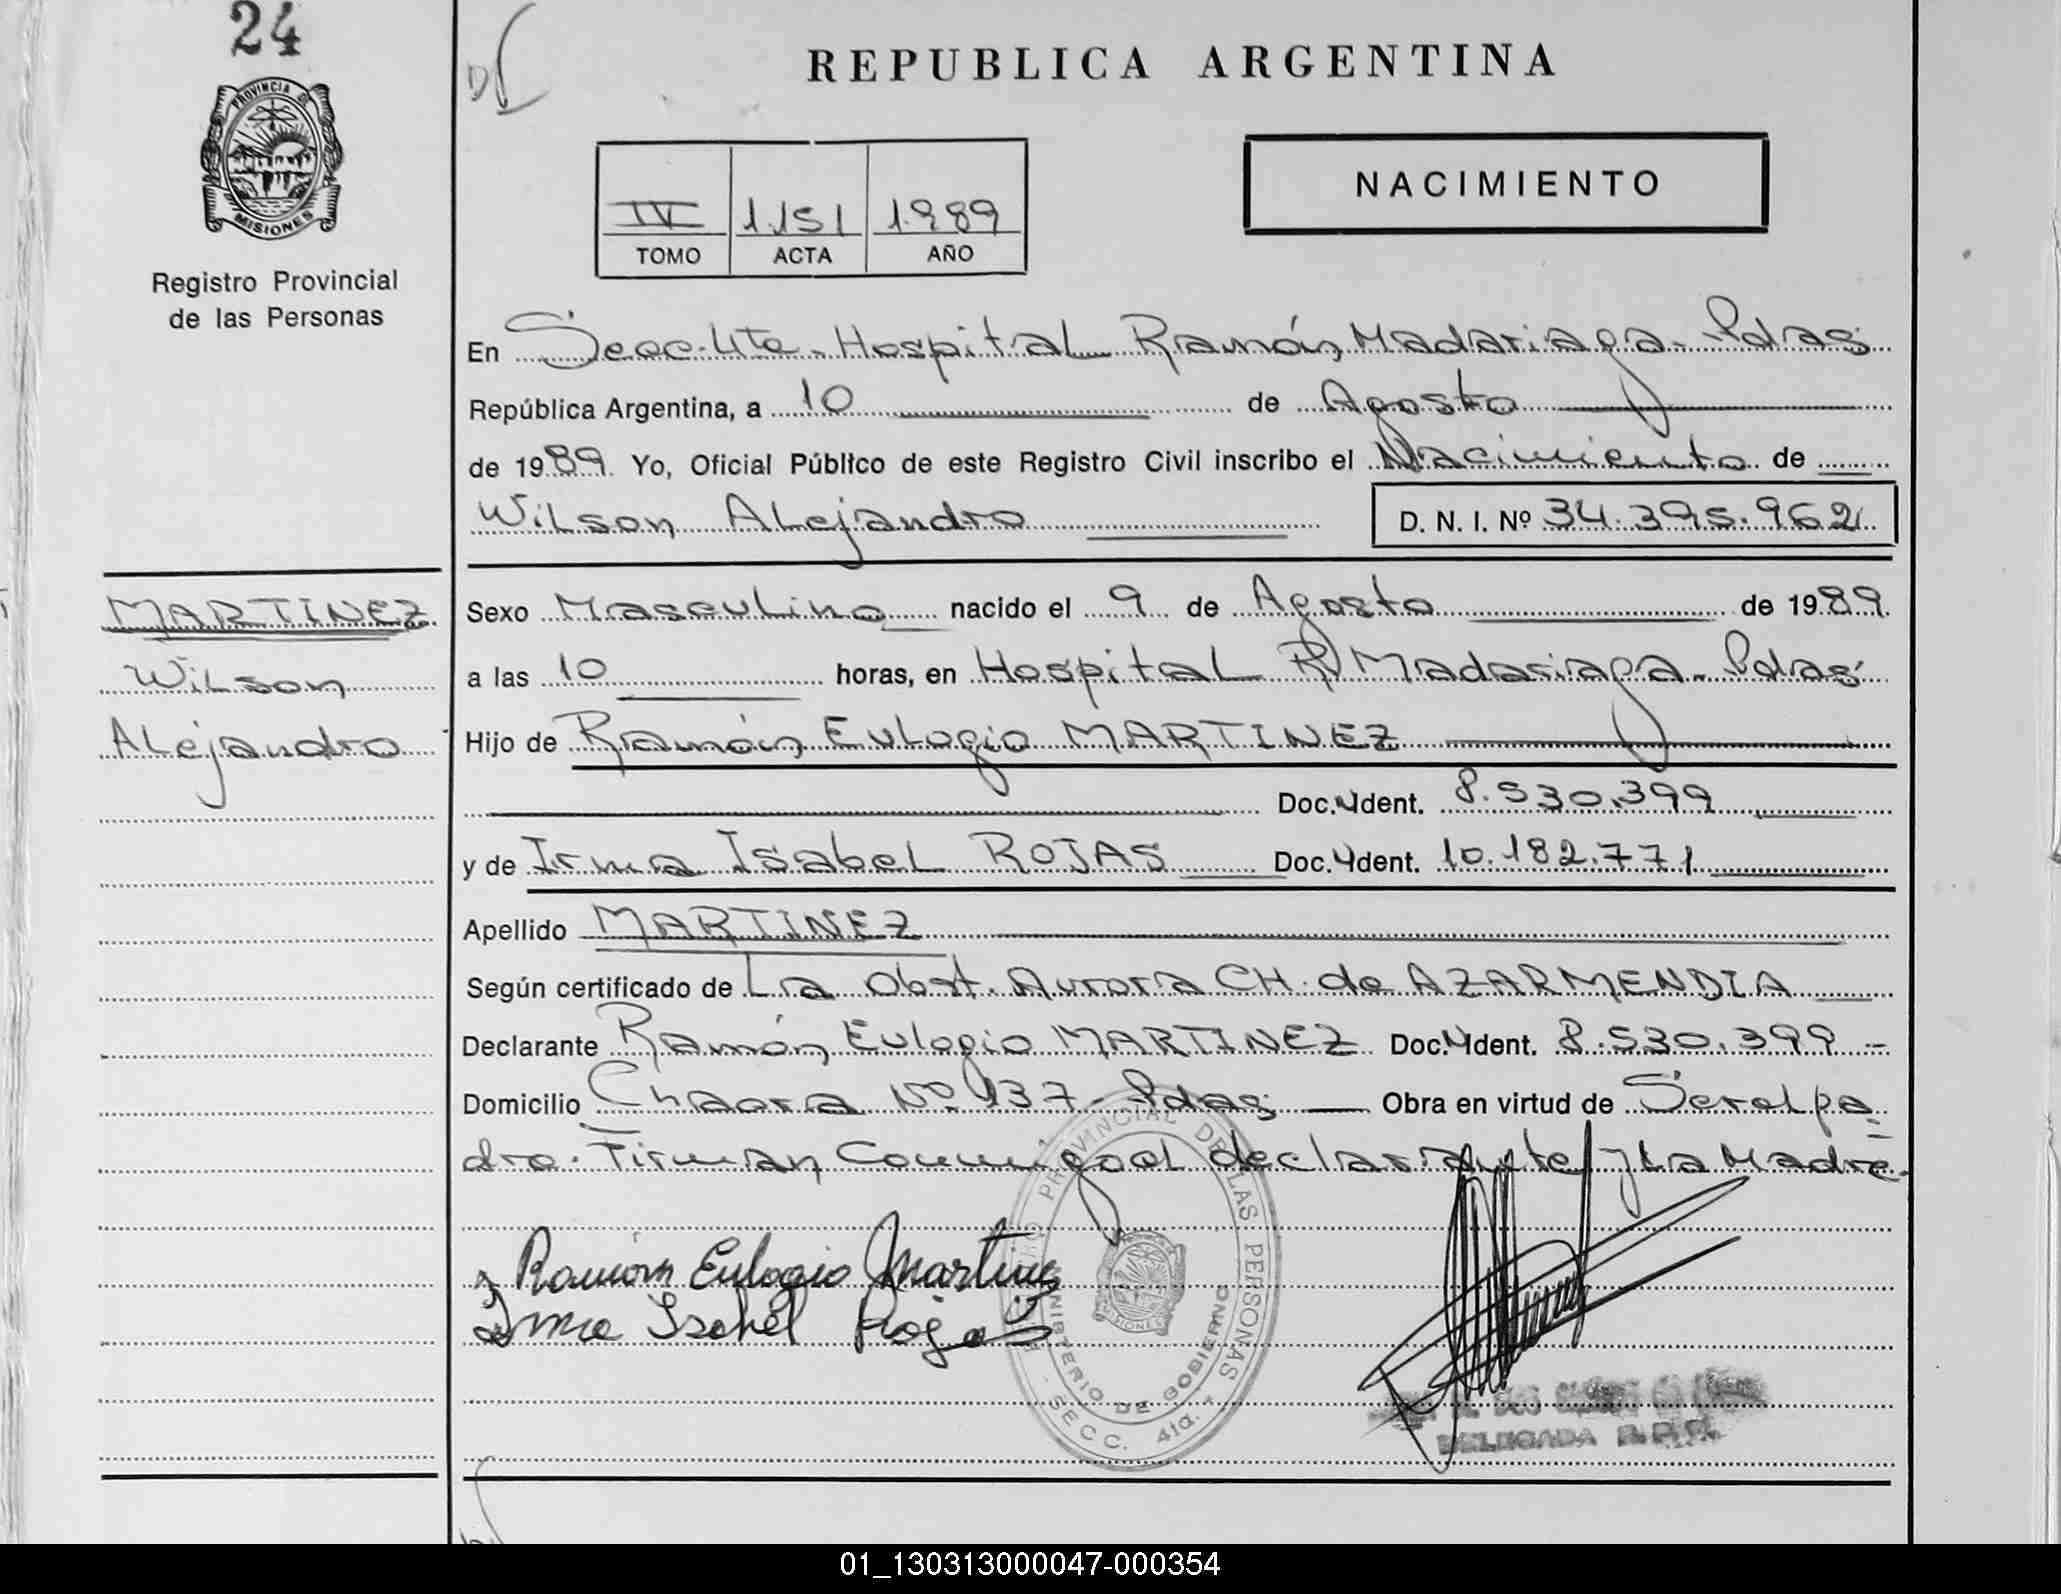 24
PROVINCIA DE
MISIONES
Registro Provincial
de las Personas
MARTINEZ
Wilson
Alejandro
REPUBLICA ARGENTINA
IV 1.151 1.989
TOMO ACTA AÑO
NACIMIENTO
En Secc. 4ta. Hospital Ramón Madariaga - Pdas
República Argentina, a 10 de Agosto
de 1989. Yo, Oficial Público de este Registro Civil inscribo el Nacimiento de
Wilson Alejandro D. N. I. Nº 34.395.962
Sexo Masculino nacido el 9 de Agosto de 1989.
a las 10 horas, en Hospital R. Madariaga - Pdas
Hijo de Ramón Eulogio MARTINEZ
Doc. Ident. 8.530.399
y de Irma Isabel ROJAS Doc. Ident. 10.182.771
Apellido MARTINEZ
Según certificado de La Obst. Aurora CH. de AZARMENDIA
Declarante Ramón Eulogio MARTINEZ Doc. Ident. 8.530.399 -
Domicilio Chacra Nº 137 - Pdas Obra en virtud de Ser el pa=
dre. Firman Conmigo el declarante y La Madre.
Ramón Eulogio Martinez
Irma Isabel Rojas
PROVINCIAL DE LAS PERSONAS
MINISTERIO DE GOBIERNO
MISIONES
- SECC. 4ta. -
DELEGADA R.P.P.
01_130313000047-000354